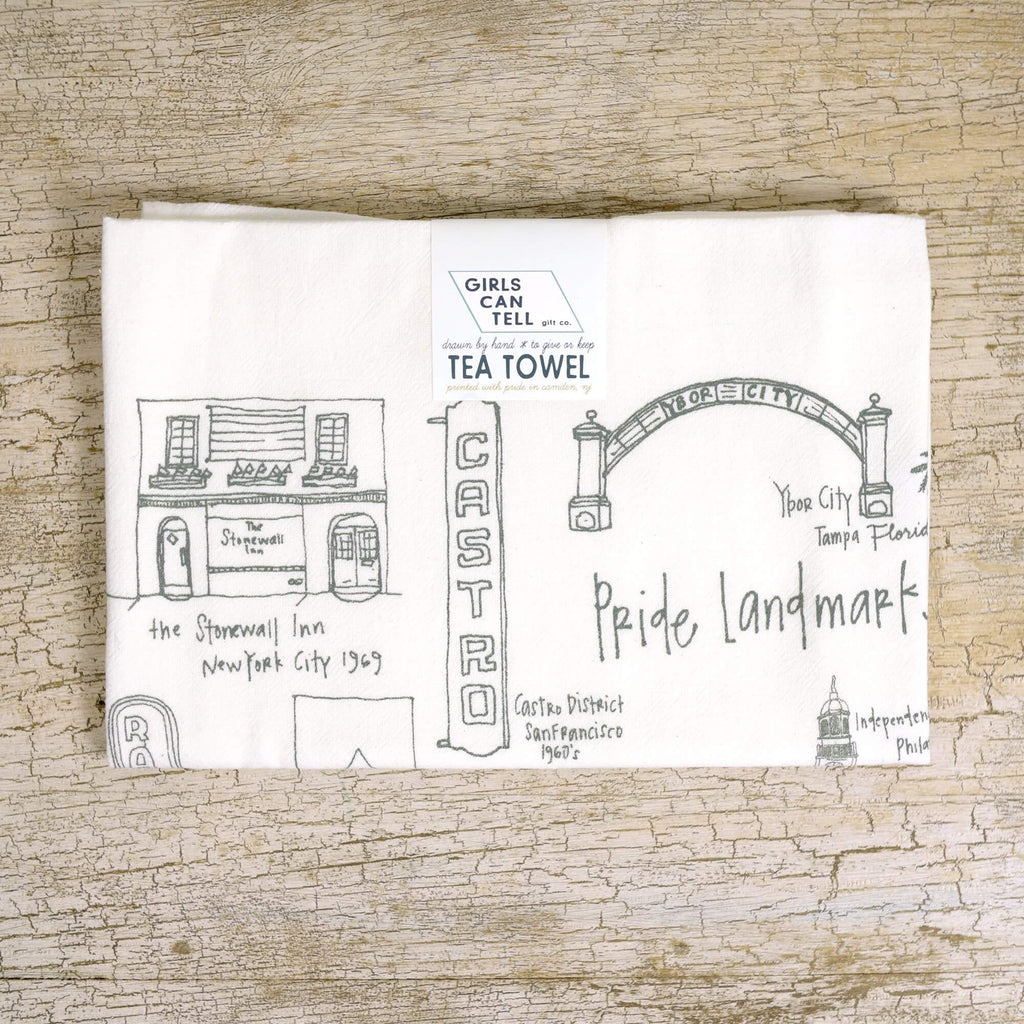 GIRLS
CAN
TELL gift co.
drawn by hand * to give or keep
TEA TOWEL
printed with pride in camden, nj
YBOR CITY
CASTRO
The
Stonewall
Inn
Ybor City
Tampa Florid
Pride Landmark
the Stonewall Inn
New York City 1969
Castro District
San Francisco
1960's
RA
Independen
Phila